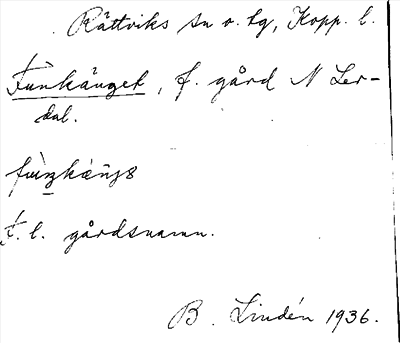 Rättviks sn o. tg, Kopp. l.
Funkänget, f. gård N Ler-
dal.
f. l. gårdsnamn.
B. Lindén 1936.